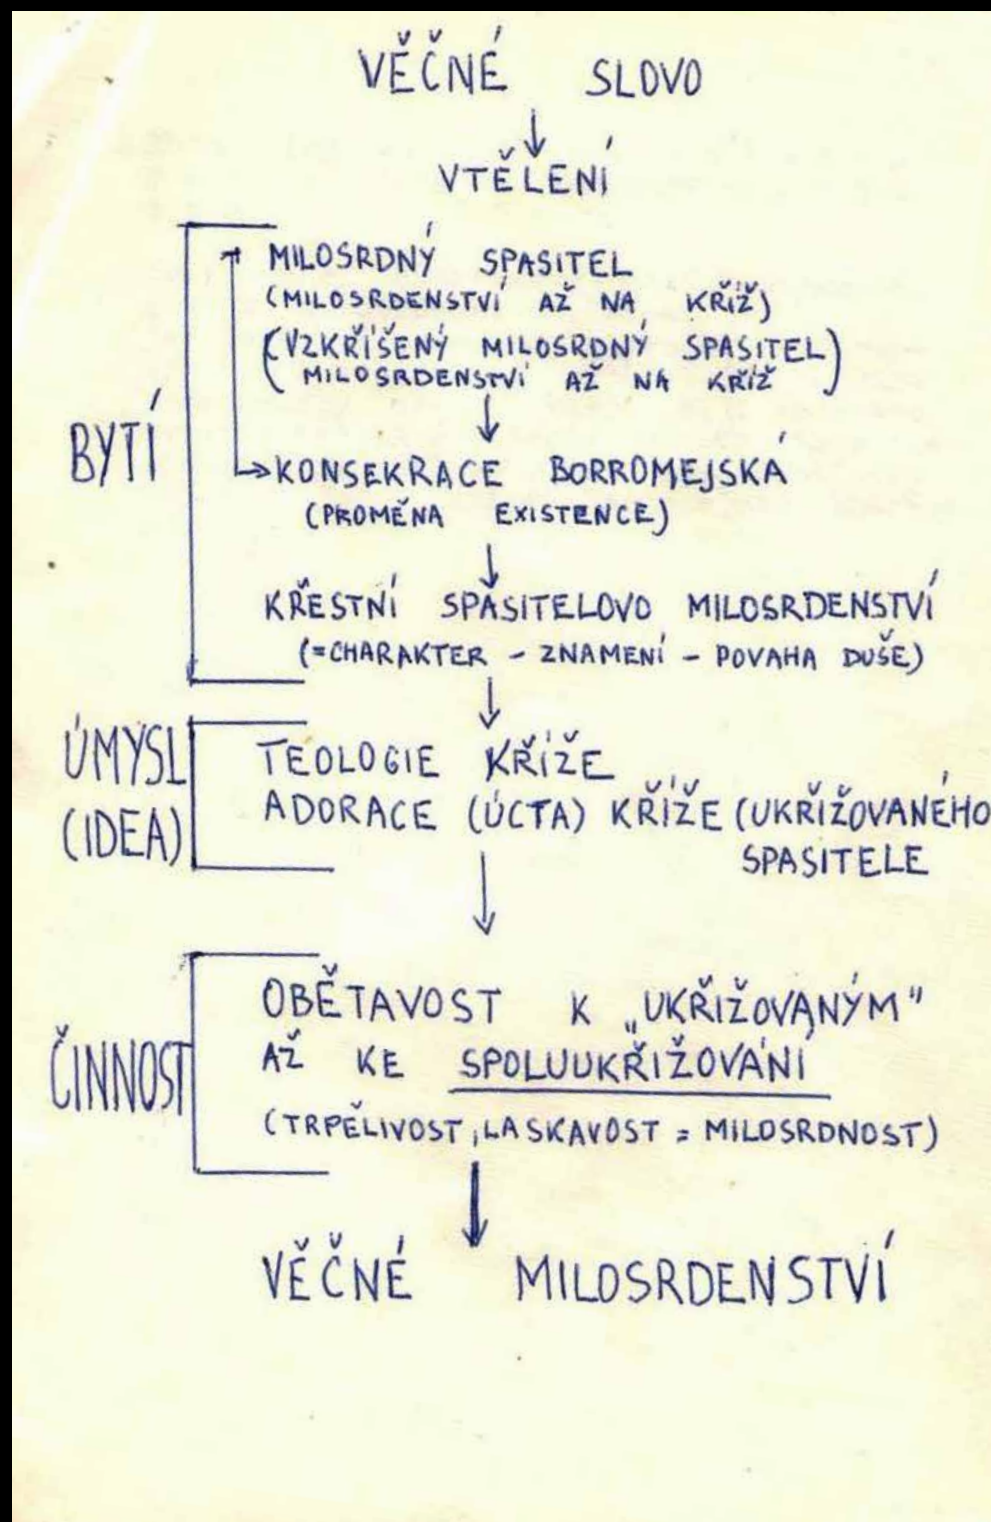 VĚČNÉ SLOVO
VTĚLENÍ
MILOSRDNÝ SPASITEL
(MILOSRDENSTVÍ AŽ NA KŘÍŽ)
(VZKŘÍŠENÝ MILOSRDNÝ SPASITEL)
MILOSRDENSTVÍ AŽ NA KŘÍŽ
BYTÍ
KONSEKRACE BORROMEJSKÁ
(PROMĚNA EXISTENCE)
KŘESTNÍ SPASITELOVO MILOSRDENSTVÍ
(=CHARAKTER - ZNAMENÍ - POVAHA DUŠE)
ÚMYSL
(IDEA)
TEOLOGIE KŘÍŽE
ADORACE (ÚCTA) KŘÍŽE (UKŘIŽOVANÉHO
SPASITELE
ČINNOST
OBĚTAVOST K „UKŘIŽOVANÝM"
AŽ KE SPOLUUKŘIŽOVÁNÍ
(TRPĚLIVOST, LASKAVOST = MILOSRDNOST)
VĚČNÉ MILOSRDENSTVÍ